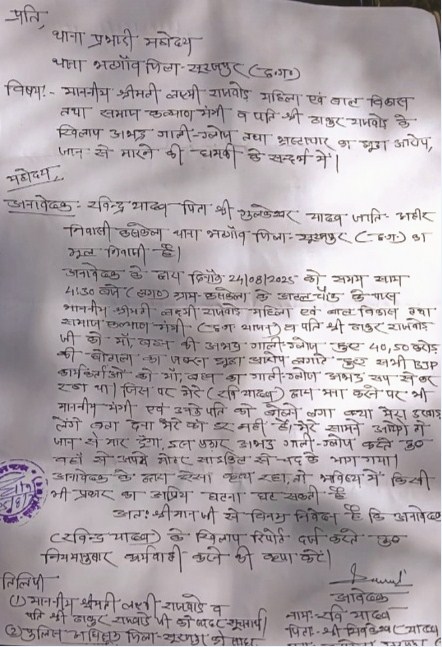 प्रति,
थाना प्रभारी महोदय
थाना भटगाँव जिला - सूरजपुर (छ०ग०)
विषय:- माननीय श्रीमती लक्ष्मी राजवाड़े महिला एवं बाल विकास
तथा समाज कल्याण मंत्री व पति श्री ठाकुर राजवाड़े के
खिलाफ अभद्र गाली-गलोज तथा भ्रष्टाचार का झूठा आरोप,
जान से मारने की धमकी के सन्दर्भ में।
महोदय,
अनावेदक:- रविन्द्र यादव पिता श्री यादव जाति- अहीर
निवासी थाना भटगाँव जिला- सूरजपुर (छ०ग०) का
मूल निवासी है।
अनावेदक के द्वारा दिनाँक 24/08/2025 को समय शाम
4:30 बजे (लगभग) ग्राम के चौक के पास
माननीय श्रीमती लक्ष्मी राजवाड़े महिला एवं बाल विकास तथा
समाज कल्याण मंत्री (छ०ग० शासन) व पति श्री ठाकुर राजवाड़े
जी को माँ, बहन की अभद्र गाली-गलोज करते हुए 40,50 करोड़
की घोटाला का झूठा आरोप लगाते हुए सभी BJP
कार्यकर्ताओं को माँ, बहन का गाली-गलोज अभद्र रूप से कर
रहा था। जिस पर मेरे (रवि यादव) द्वारा मना करने पर भी
माननीय मंत्री एवं उनके पति को बोलने लगा क्या मेरा उखाड़
लेंगे बता देना मेरे को डर नहीं है। मेरे सामने आयेगा तो
जान से मार देगा, इस प्रकार अभद्र गाली-गलोज करते हुए
वहाँ से अपने मोटर साइकिल से भाग गया।
अनावेदक के द्वारा ऐसा करता रहा, तो भविष्य में किसी
भी प्रकार का अप्रिय घटना घट सकती है
अतः श्रीमान जी से विनम्र निवेदन है कि अनावेदक
(रविन्द्र यादव) के खिलाफ रिपोर्ट दर्ज करते हुए
नियमानुसार कार्यवाही करने की कृपा करें।
आवेदक
(1) माननीय श्रीमती लक्ष्मी राजवाड़े व
पति श्री ठाकुर राजवाड़े जी को सादर
नाम- रवि यादव
पिता- श्री यादव
(2) पुलिस जिला- सूरजपुर को सादर